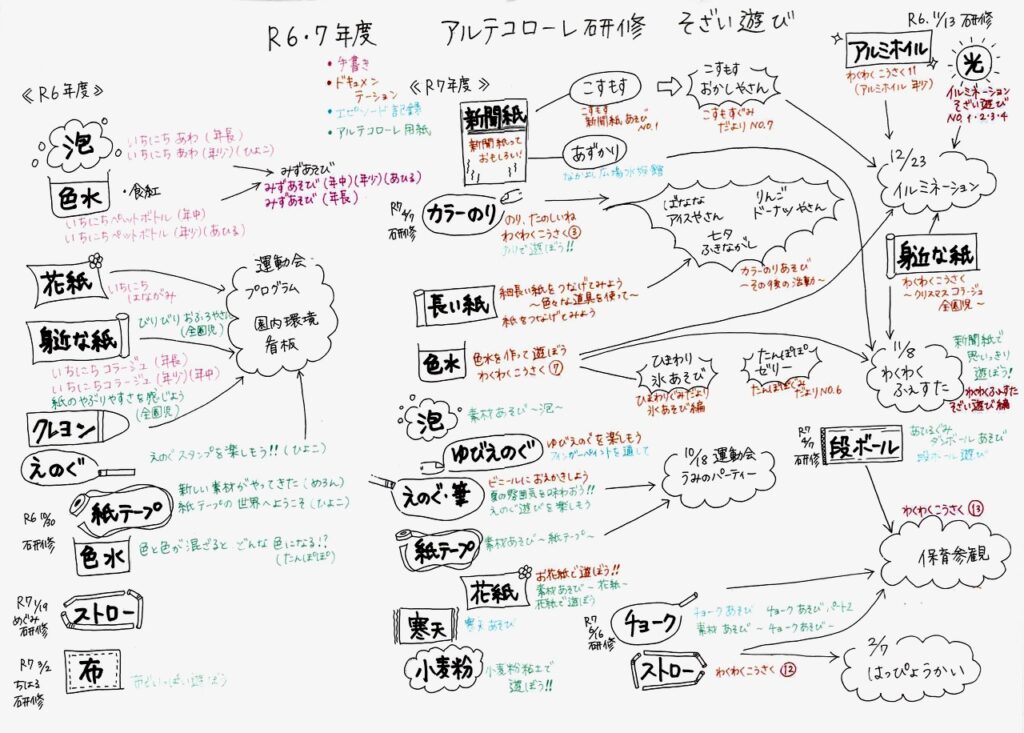 R6・7年度 アルテコローレ研修 そざい遊び
・手書き
・ドキュメンテーション
・エピソード記録
・アルテコローレ用紙
《R6年度》
泡
いちにちあわ(年長)
いちにちあわ(年少)(ひよこ)
色水
・食紅
いちにちペットボトル(年中)
いちにちペットボトル(年少)(あひる)
みずあそび
みずあそび(年中)(年少)(あひる)
みずあそび(年長)
花紙
いちにち
はながみ
身近な紙
びりびりおふろやさん
(全園児)
いちにちコラージュ(年長)
いちにちコラージュ(年少)(年中)
紙のやぶりやすさを感じよう
(全園児)
運動会
プログラム
園内環境
看板
クレヨン
えのぐ
えのぐスタンプを楽しもう!!(ひよこ)
R6 10/30
研修
紙テープ
新しい素材がやってきた(めろん)
紙テープの世界へようこそ(ひよこ)
色水
色と色が混ざるとどんな色になる!?
(たんぽぽ)
R7 1/19
めぐみ
研修
ストロー
R7 3/2
ちはる
研修
布
布といっぱい遊ぼう
《R7年度》
新聞紙
新聞紙って
おもしろい!
こすもす
こすもす
新聞紙あそび
NO.1
こすもす
おかしやさん
こすもすぐみ
だよりNO.7
あずかり
なかよし広場水族館
R7
研修
カラーのり
のり、たのしいね
わくわくこうさく③
ノリで遊ぼう!!
ばなな
アイスやさん
りんご
ドーナッツやさん
七夕
ふきながし
カラーのりあそび
~その後の活動~
長い紙
細長い紙をつなげてみよう
~色々な道具を使って~
紙をつなげてみよう
色水
色水を作って遊ぼう
わくわくこうさく⑦
ひまわり
氷あそび
ひまわりぐみだより
氷あそび編
たんぽぽ
ゼリー
たんぽぽぐみ
だよりNO.6
泡
素材あそび~泡~
ゆびえのぐ
ゆびえのぐを楽しもう
フィンガーペイントを通して
えのぐ・筆
ビニールにおえかきしよう
夏の雰囲気を味わおう!!
えのぐ遊びを楽しもう
紙テープ
素材あそび~紙テープ~
10/18 運動会
うみのパーティー
花紙
お花紙で遊ぼう!!
素材あそび~花紙~
花紙で遊ぼう
寒天
寒天あそび
小麦粉
小麦粉粘土で
遊ぼう!!
R7
6/16
研修
チョーク
チョークあそび チョークあそびパート2
素材あそび~チョークあそび~
ストロー
わくわくこうさく⑫
R6. 11/13 研修
アルミホイル
わくわくこうさく11
(アルミホイル 年少)
光
イルミネーション
そざい遊び
NO.1・2・3・4
12/23
イルミネーション
身近な紙
わくわくこうさく
~クリスマスコラージュ
全園児~
11/8
わくわく
ふぇすた
新聞紙で
思いっきり
遊ぼう!
わくわくふぇすた
そざい遊び編
R7
研修
段ボール
あひるぐみ
ダンボールあそび
段ボール遊び
わくわくこうさく⑬
保育参観
2/7
はっぴょうかい